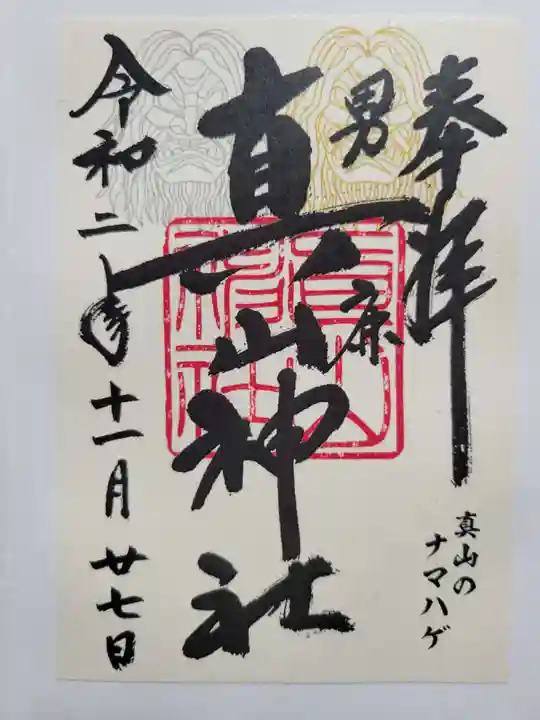 奉拝
真山の
ナマハゲ
男鹿
真山神社
令和二年十一月廿七日